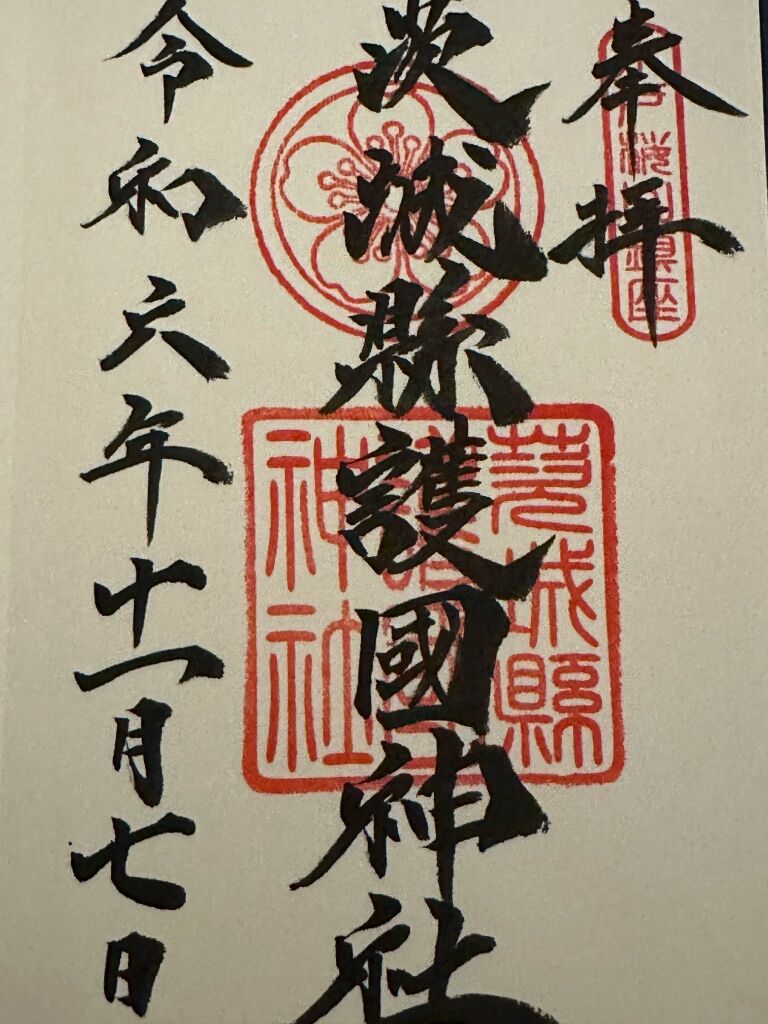 奉拝
茨城縣護國神社
令和六年十一月七日
茨城縣
護國
神社